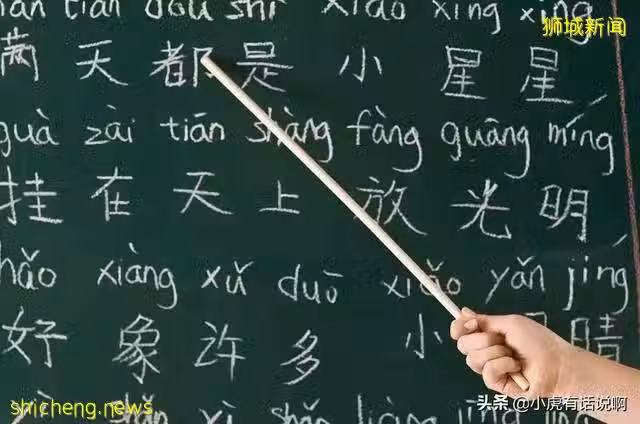 狮城新闻
tian dou shi xiao xing xing
满 天 都 是 小 星 星
guà zài tiān shàng fàng guāng míng
挂 在 天 上 放 光 明
hǎo xiàng xǔ duō xiǎo yǎn jīng
好 象 许 多 小 睛
shǎn yì shǎn
shicheng.news
头条 @小虎有话说啊